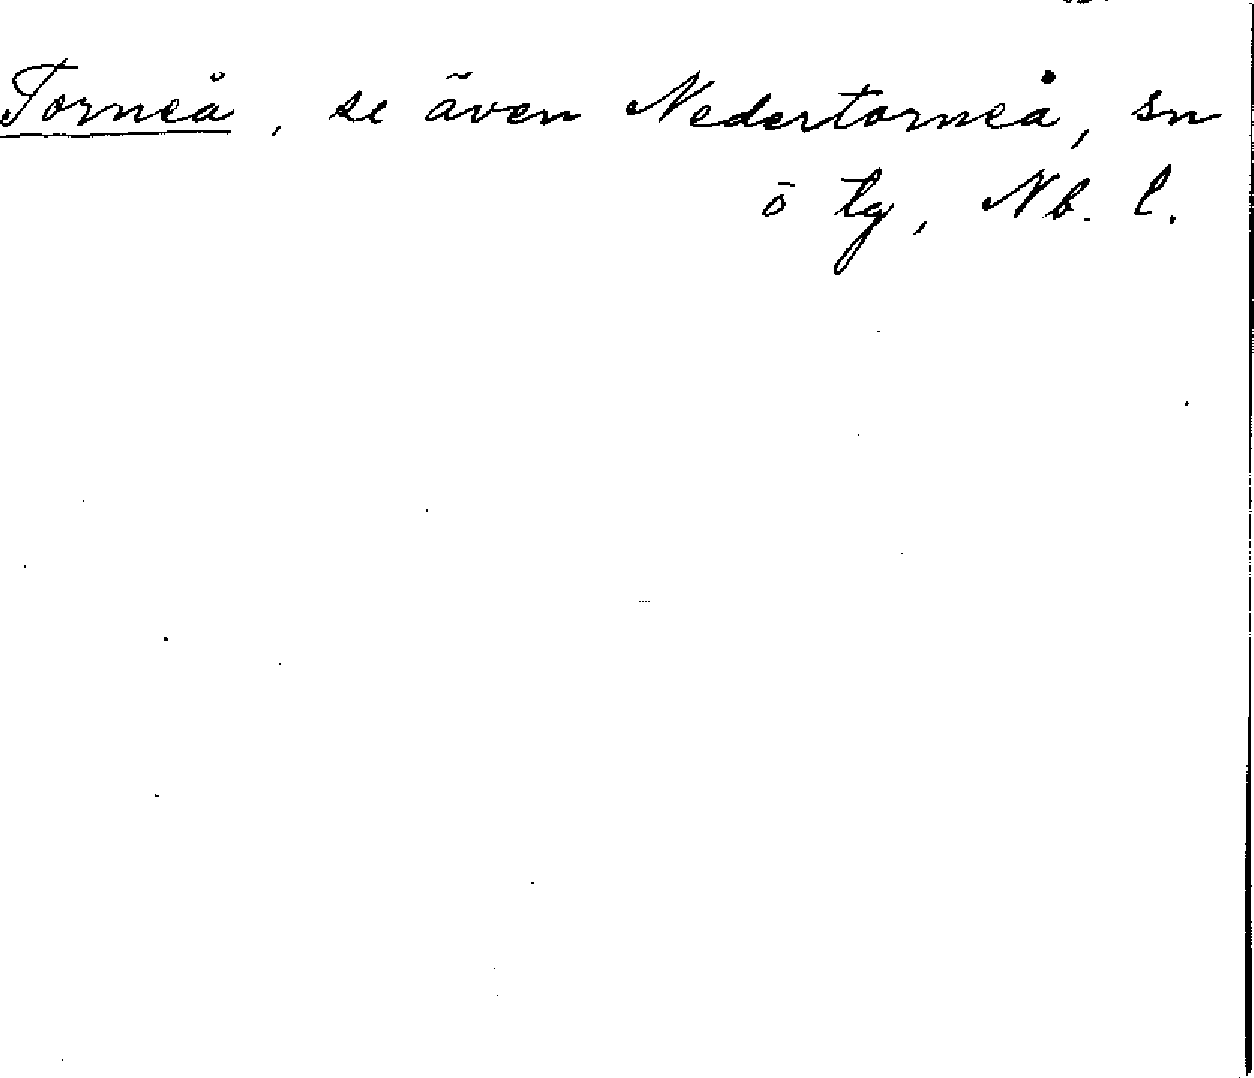 Torneå, se även Nedertorneå, sn
ö tg, Nb. l.